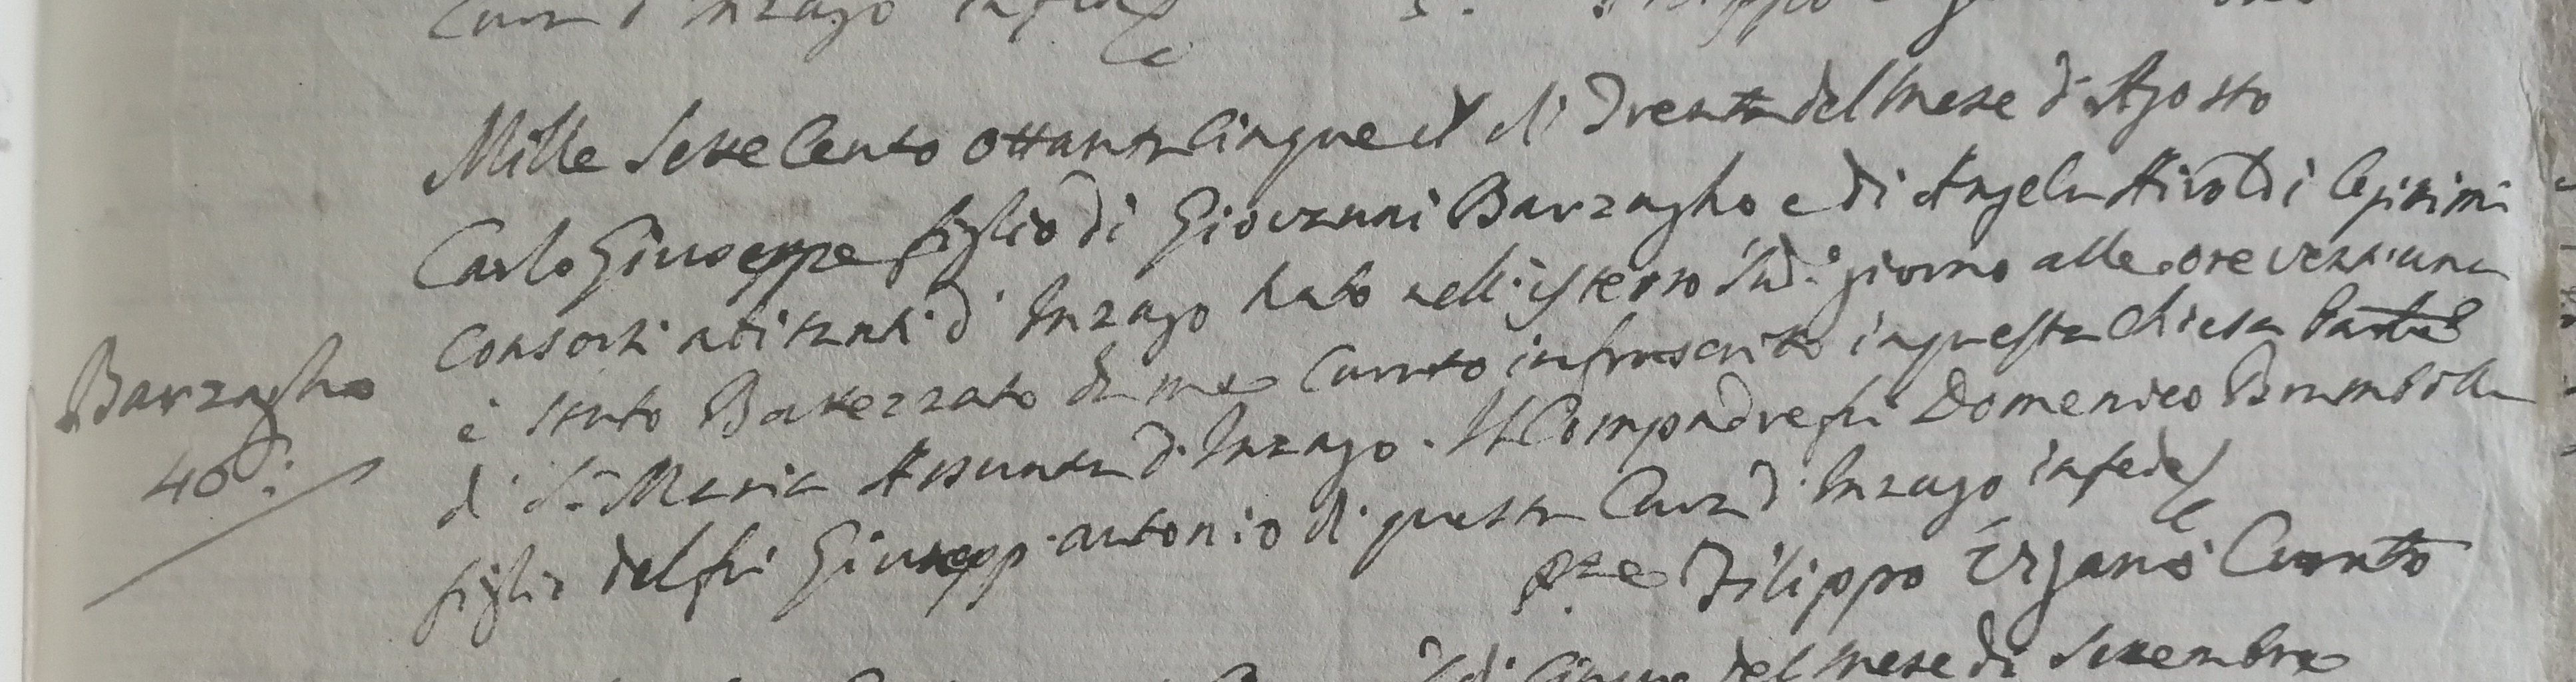 Cura d'Inzago in fede
Mille Sette Cento ottanta Cinque il di Trenta del Mese di Agosto
Carlo Giuseppe figlio di Giovanni Barzagho e di Angela Airoldi legitimi
Consorti abitanti d'Inzago nato nell'istesso Sud.º giorno alle ore vent'una
è stato Battezzato da me Curato infrascritto in questa Chiesa Parle
di Sa Maria Assunta d'Inzago. Il Compadre fu Domenico Brambilla
figlio del fu Giusepp antonio di questa Cura d'Inzago in fede
Barzagho
40:
Pre Filippo Orjano Curato
di Cinque del Mese di Settembre